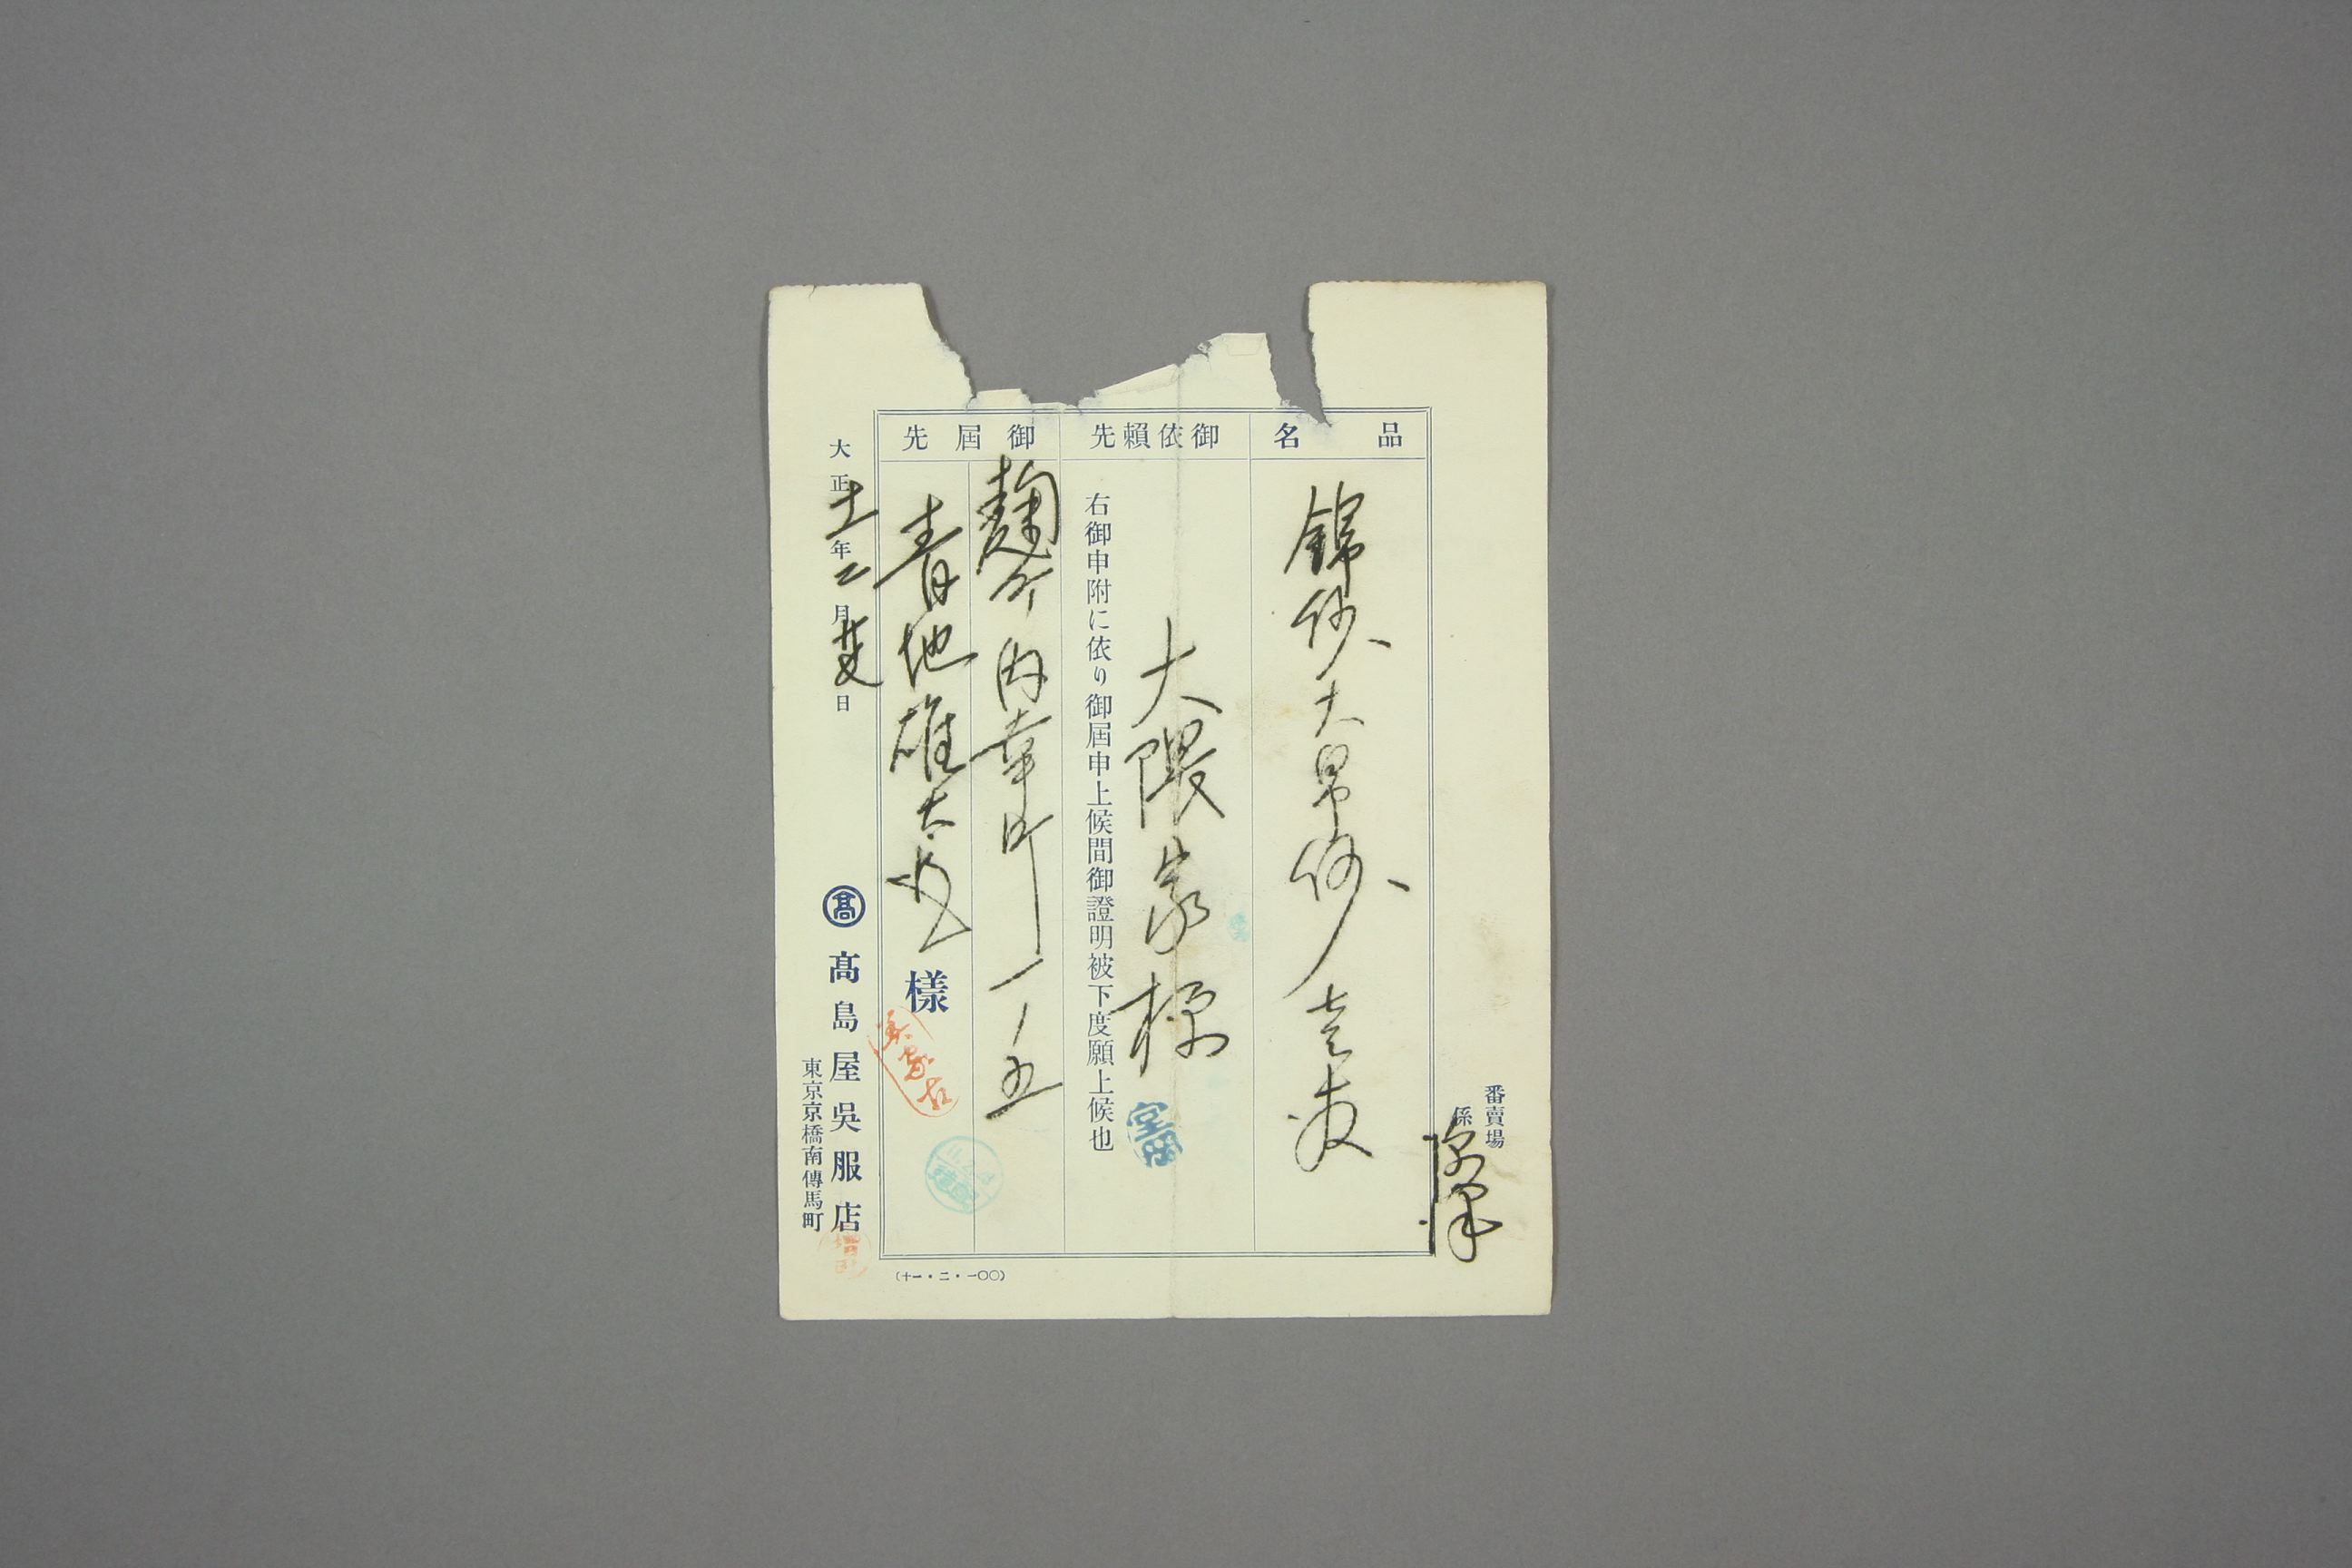 番賣場
係
品名
錦紗、大帛紗、壱枚
御依賴先
大隈家様
右御申附に依り御屆申上候間御證明被下度願上候也
御屆先
麹丁内幸町一ノ五
青地雄太郎様
大正十一年二月廿四日
髙
髙島屋吳服店
東京京橋南傳馬町
(十一・二・一〇〇)